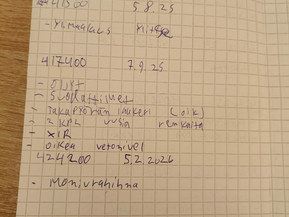 5.8.25
417400 7.9.25
- Öljyt
- Suodattimet
- Takapyörän laakeri (oik)
- 2 kpl uusia renkaita
- XIR
- oikea vetonivel
424200 5.2.2026
- Moniurahihna